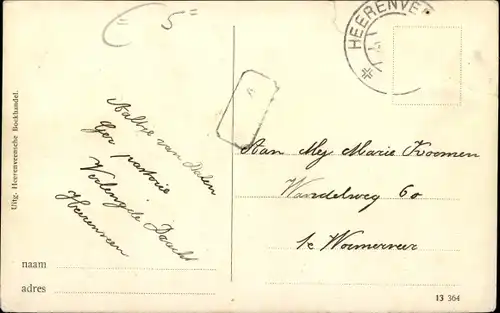 = 5 =
HEERENVE
Uitg. Heerenveensche Boekhandel.
Aaltje van Dalen
Ger pastorie
Verlengde Dracht
Heerenveen
Aan Mej Marie Koomen
Wandelweg 60
te Wormerveer
naam
adres
13 364